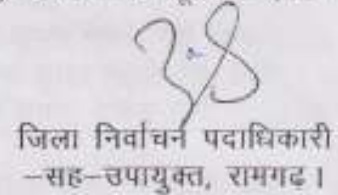 जिला निर्वाचन पदाधिकारी
-सह-उपायुक्त, रामगढ़।